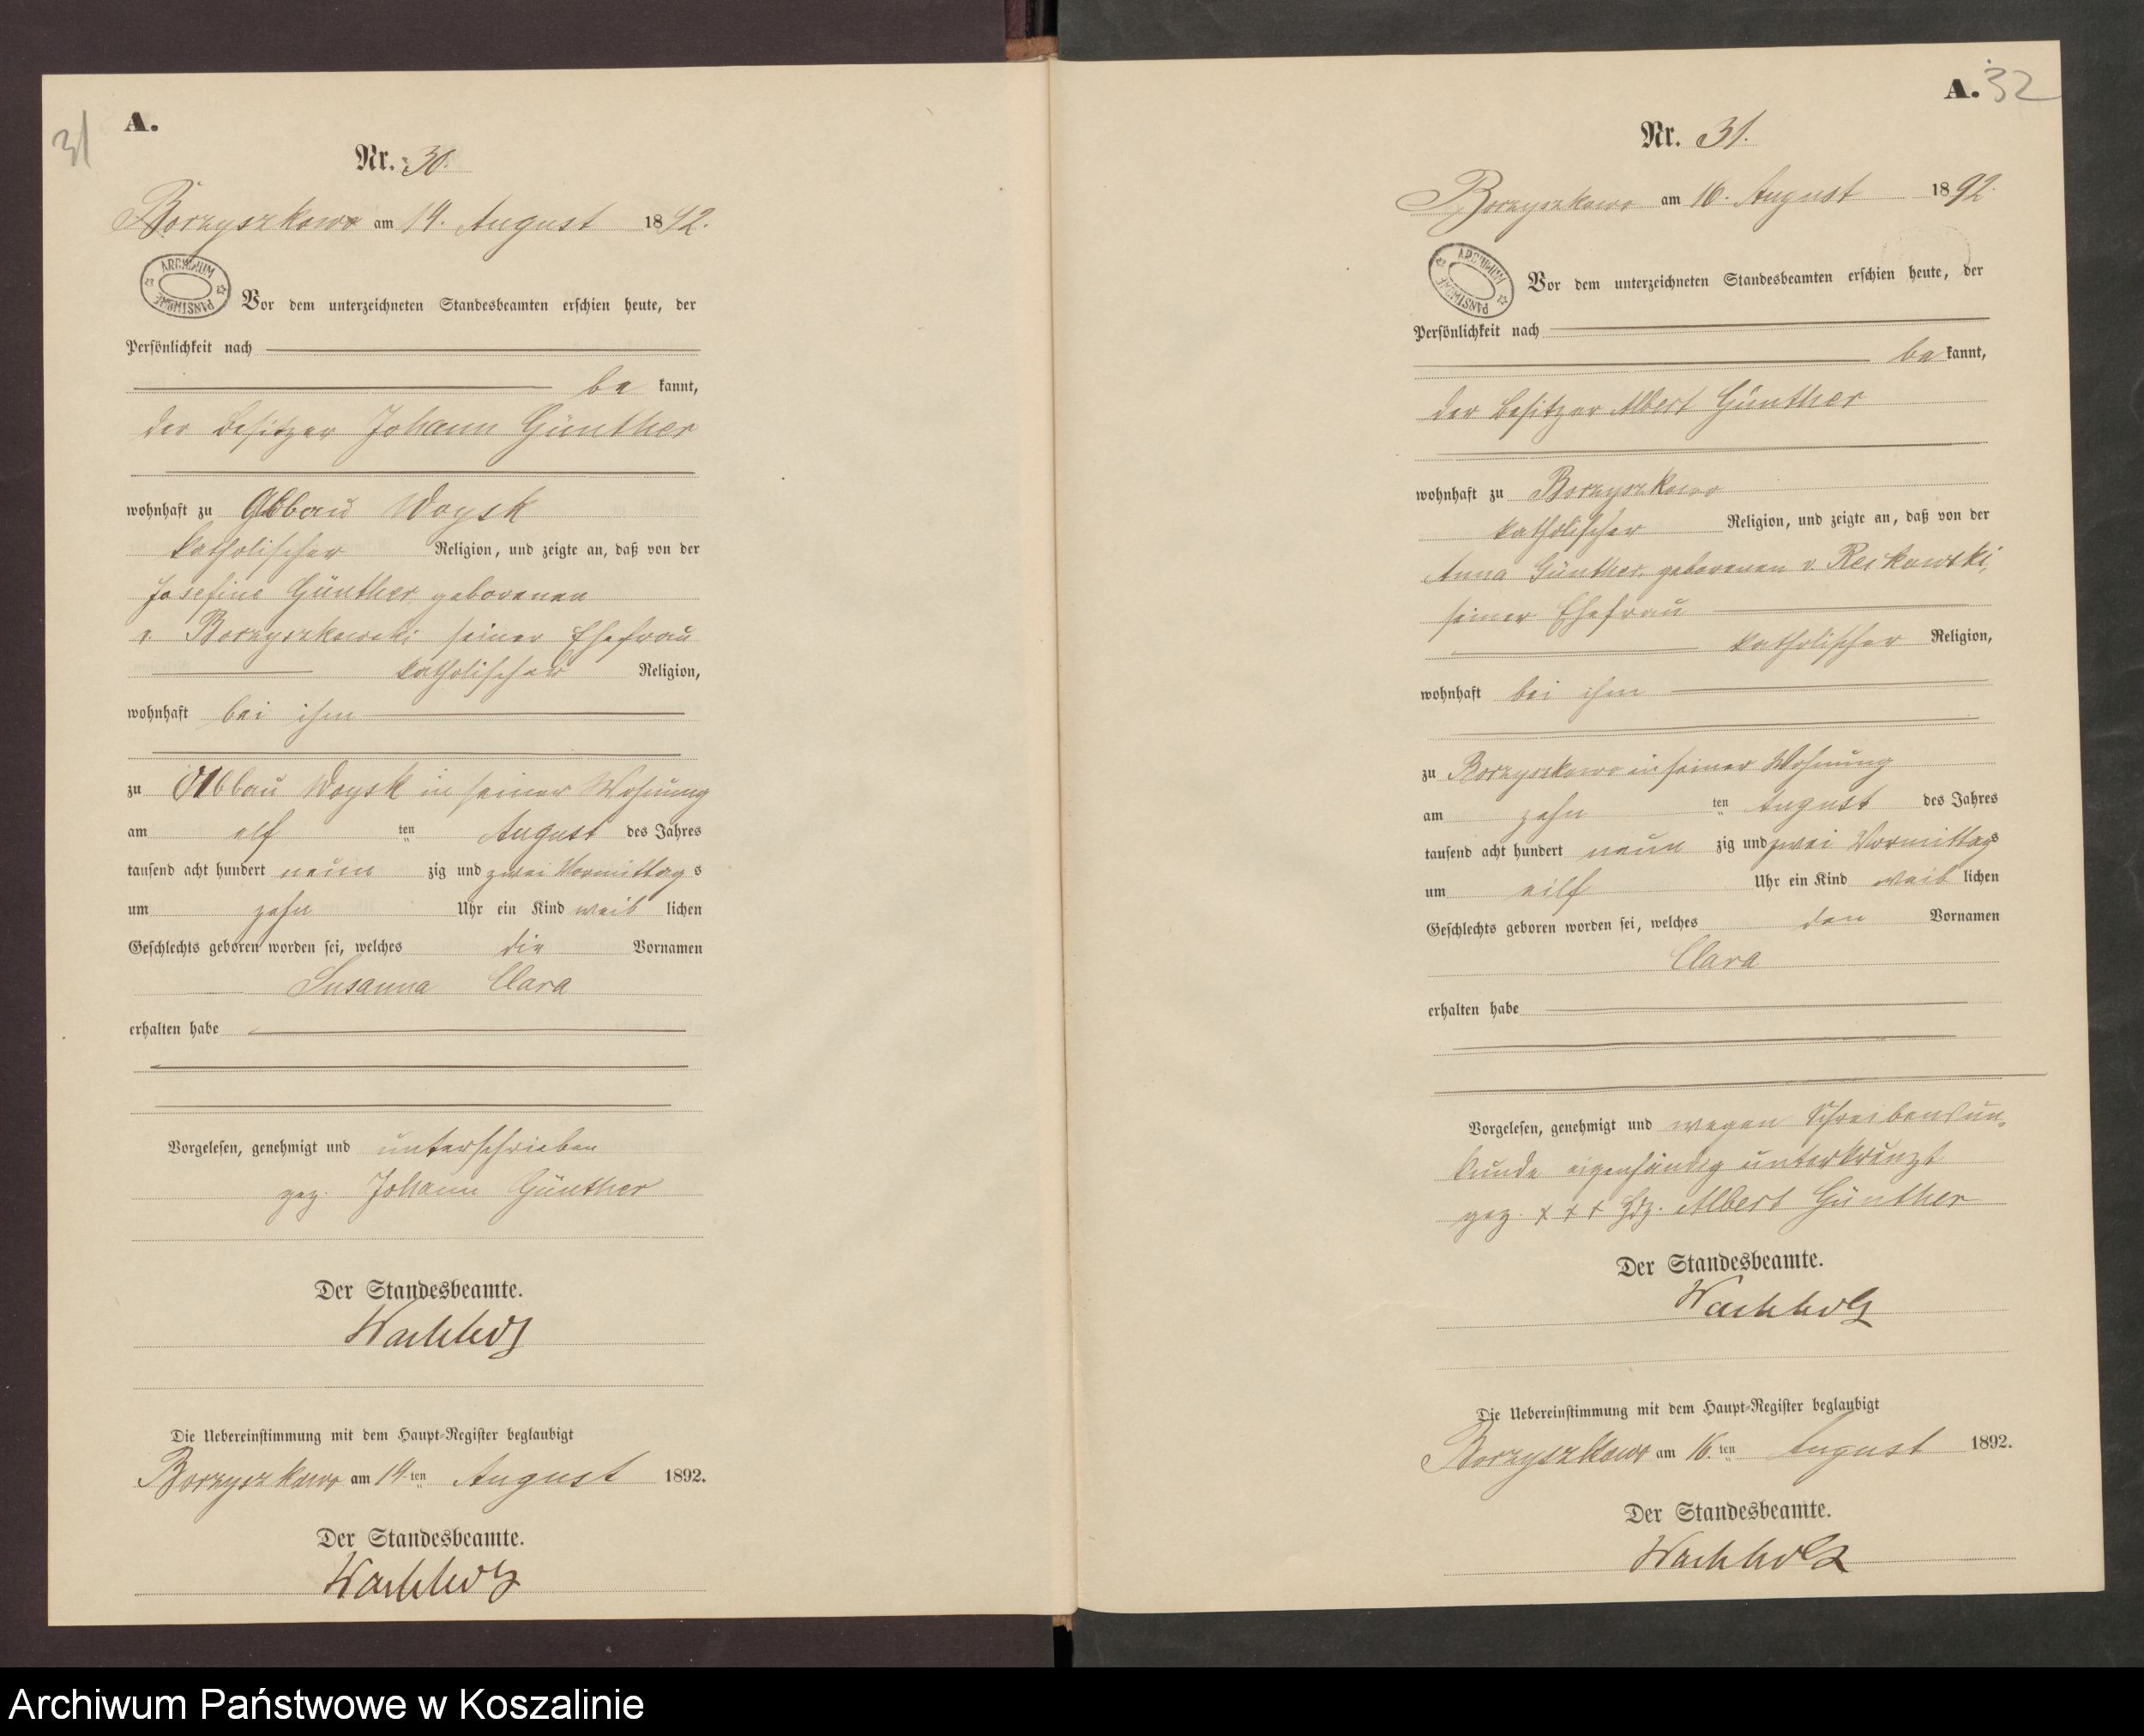 31
A.
Nr. 30.
Borzyszkowo am 14. August 1892.
ARCHIWUM PAŃSTWOWE
Vor dem unterzeichneten Standesbeamten erschien heute, der
Persönlichkeit nach
be kannt,
der Besitzer Johann Günther
wohnhaft zu Abbau Woysk
katholischer Religion, und zeigte an, daß von der
Josefine Günther geborenen
v. Borzyszkowski seiner Ehefrau
katholischer Religion,
wohnhaft bei ihm
zu Abbau Woysk in seiner Wohnung
am elf ten August des Jahres
tausend acht hundert neun zig und zwei Vormittag s
um zehn Uhr ein Kind weib lichen
Geschlechts geboren worden sei, welches die Vornamen
Susanna Clara
erhalten habe
Vorgelesen, genehmigt und unterschrieben
gez. Johann Günther
Der Standesbeamte.
Wachholz
Die Uebereinstimmung mit dem Haupt-Register beglaubigt
Borzyszkowo am 14. ten August 1892.
Der Standesbeamte.
Wachholz
A. 32
Nr. 31.
Borzyszkowo am 16. August 1892.
ARCHIWUM PAŃSTWOWE
Vor dem unterzeichneten Standesbeamten erschien heute, der
Persönlichkeit nach
be kannt,
der Besitzer Albert Günther
wohnhaft zu Borzyszkowo
katholischer Religion, und zeigte an, daß von der
Anna Günther, geborenen v. Reikowski,
seiner Ehefrau
katholischer Religion,
wohnhaft bei ihm
zu Borzyszkowo in seiner Wohnung
am zehn ten August des Jahres
tausend acht hundert neun zig und zwei Vormittags
um eilf Uhr ein Kind weib lichen
Geschlechts geboren worden sei, welches den Vornamen
Clara
erhalten habe
Vorgelesen, genehmigt und wegen Schreibensun-
kunde eigenhändig unterkreuzt
gez. + + + Hdz. Albert Günther
Der Standesbeamte.
Wachholz
Die Uebereinstimmung mit dem Haupt-Register beglaubigt
Borzyszkowo am 16. ten August 1892.
Der Standesbeamte.
Wachholz
Archiwum Państwowe w Koszalinie